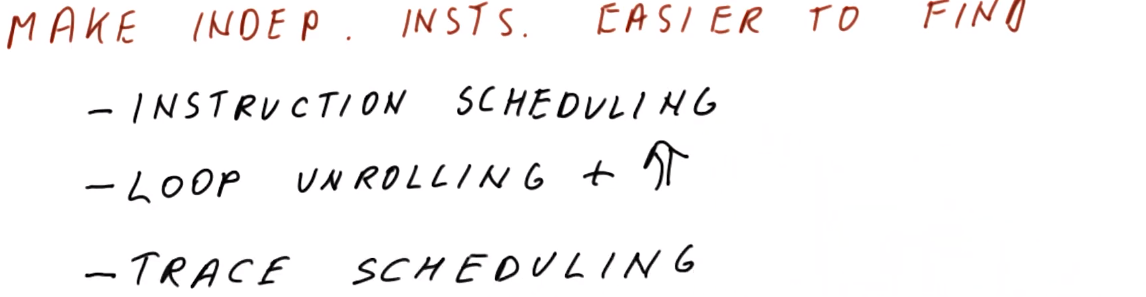 MAKE INDEP. INSTS. EASIER TO FIND
- INSTRUCTION SCHEDULING
- LOOP UNROLLING + ⇑
- TRACE SCHEDULING